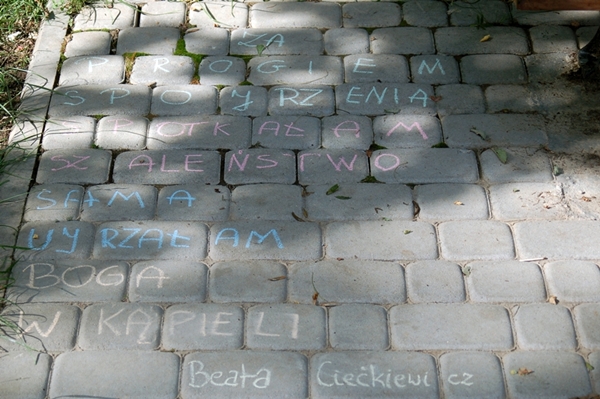 ZA
PROGIEM
SPOJRZENIA
SPOTKAŁAM
SZALEŃSTWO
SAMA
UJRZAŁAM
BOGA
W KĄPIELI
Beata Ciećkiewicz